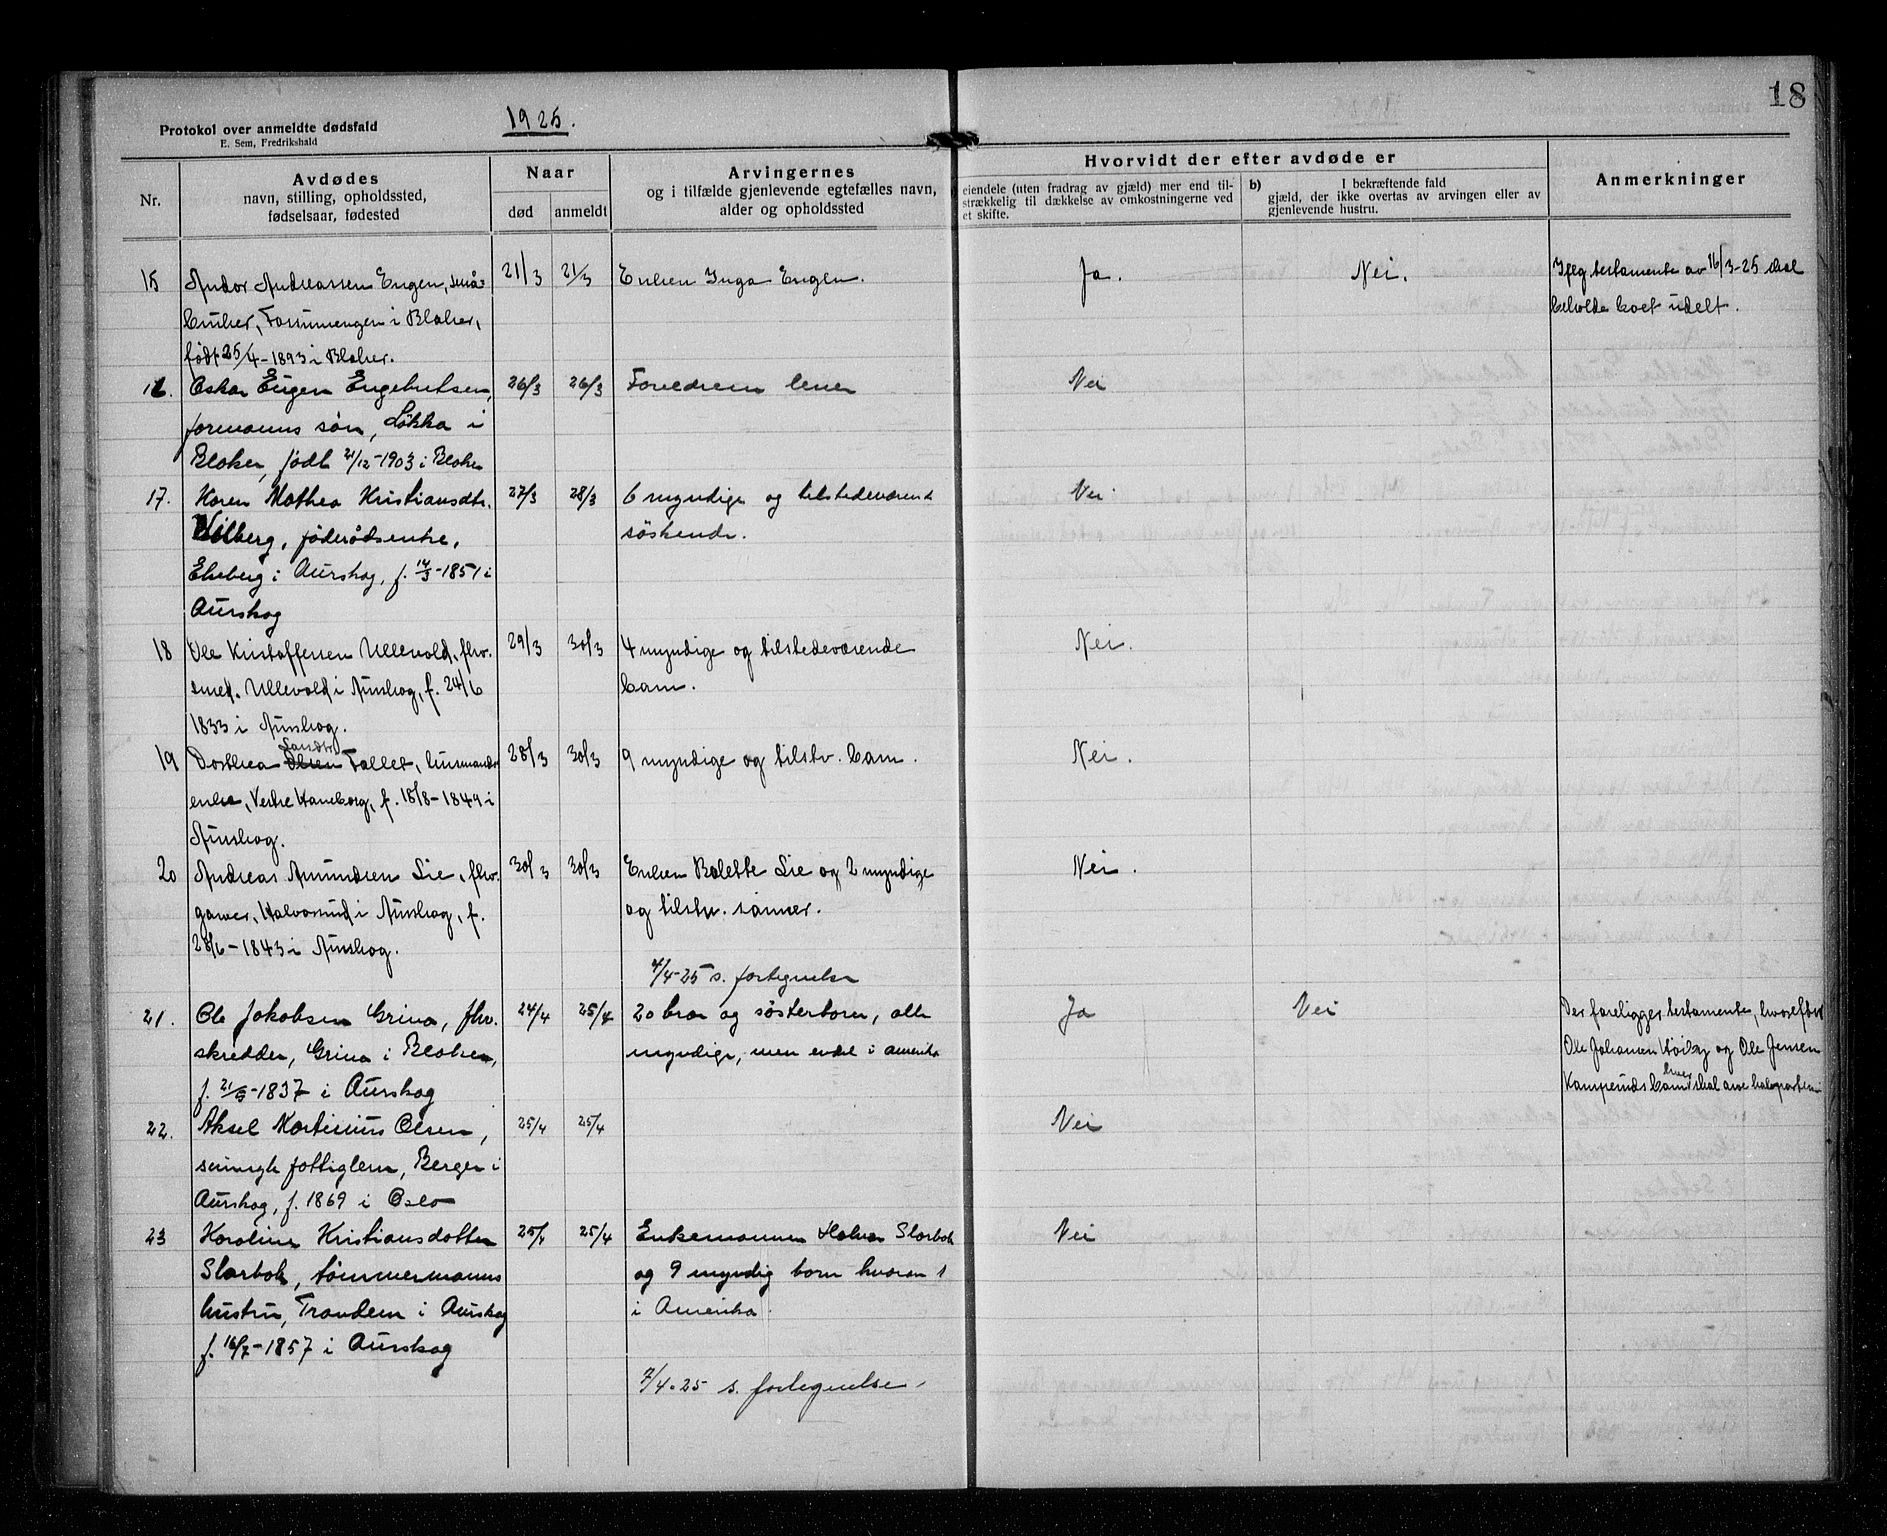 18
Protokol over anmeldte dødsfald
E. Sem, Fredrikshald
1925.
Nr.
Avdødes
navn, stilling, opholdssted,
fødselsaar, fødested
Naar
død
anmeldt
Arvingernes
og i tilfælde gjenlevende egtefælles navn,
alder og opholdssted
Hvorvidt der efter avdøde er
eiendele (uten fradrag av gjæld) mer end til-
strækkelig til dækkelse av omkostningerne ved
et skifte.
b)
I bekræftende fald
gjæld, der ikke overtas av arvingen eller av
gjenlevende hustru.
Anmerkninger
15 Andor Andreassen Engen, små- 21/3 21/3 Enken Inga Engen. Ja. Nei. Ifølg testamente av 16/3-25 skal
bruker, i Blaker, beholde boet udelt.
født 25/4-1893 i Blaker.
16. Oskar Eugen Engebretsen, 26/3 26/3 Forældrene lever Nei
formanns søn, Løkka i
Blaker, født 21/12-1903 i Blaker
17. Karen Mathea Kristiansdtr. 27/3 28/3 6 myndige og tilstedeværende Nei
Wilberg, føderådsenke, søskende.
Ekeberg i Aurskog, f. 14/3-1851 i
Aurskog
18 Ole Kristoffersen Ullevold, fhv. 29/3 30/3 4 myndige og tilstedeværende Nei.
smed. Ullevold i Aurskog, f. 24/6 barn.
1833 i Aurskog.
19 Dorthea Olsen Tollet, husmands 28/3 30/3 9 myndige og tilstv. barn. Nei.
enke, Vestre Haneborg, f. 18/8-1849 i
Aurskog.
20 Andreas Amundsen Lie, fhv. 30/3 30/3 Enken Bolette Lie og 2 myndige Nei.
garver, Halvorsrud i Aurskog, f. og tilstv. sønner.
28/6-1843 i Aurskog.
4/4-25 s. fortegnelse
21. Ole Jakobsen Grina, fhv. 24/4 25/4 20 bror og søsterborn, alle Ja Nei Der foreligger testamente, hvorefter
skredder, Grina i Blaker, myndige, men endel i amerika Ole Johansen Høiby og Ole Jensen
f. 21/9-1837 i Aurskog Kamperuds barn skal arve halvparten
22. Aksel Martinius Olsen, 25/4 25/4 Nei
sinnsyk fattiglem, Berger i
Aurskog, f. 1869 i Oslo
23 Karoline Kristiansdatter 25/4 25/4 Enkemannen Halvor Slorbak Nei
Slorbak, tømmermanns og 9 myndig born hvorav 1
hustru, Trandem i Aurskog i Amerika.
f. 16/7-1857 i Aurskog
7/4-25 s. fortegnelse